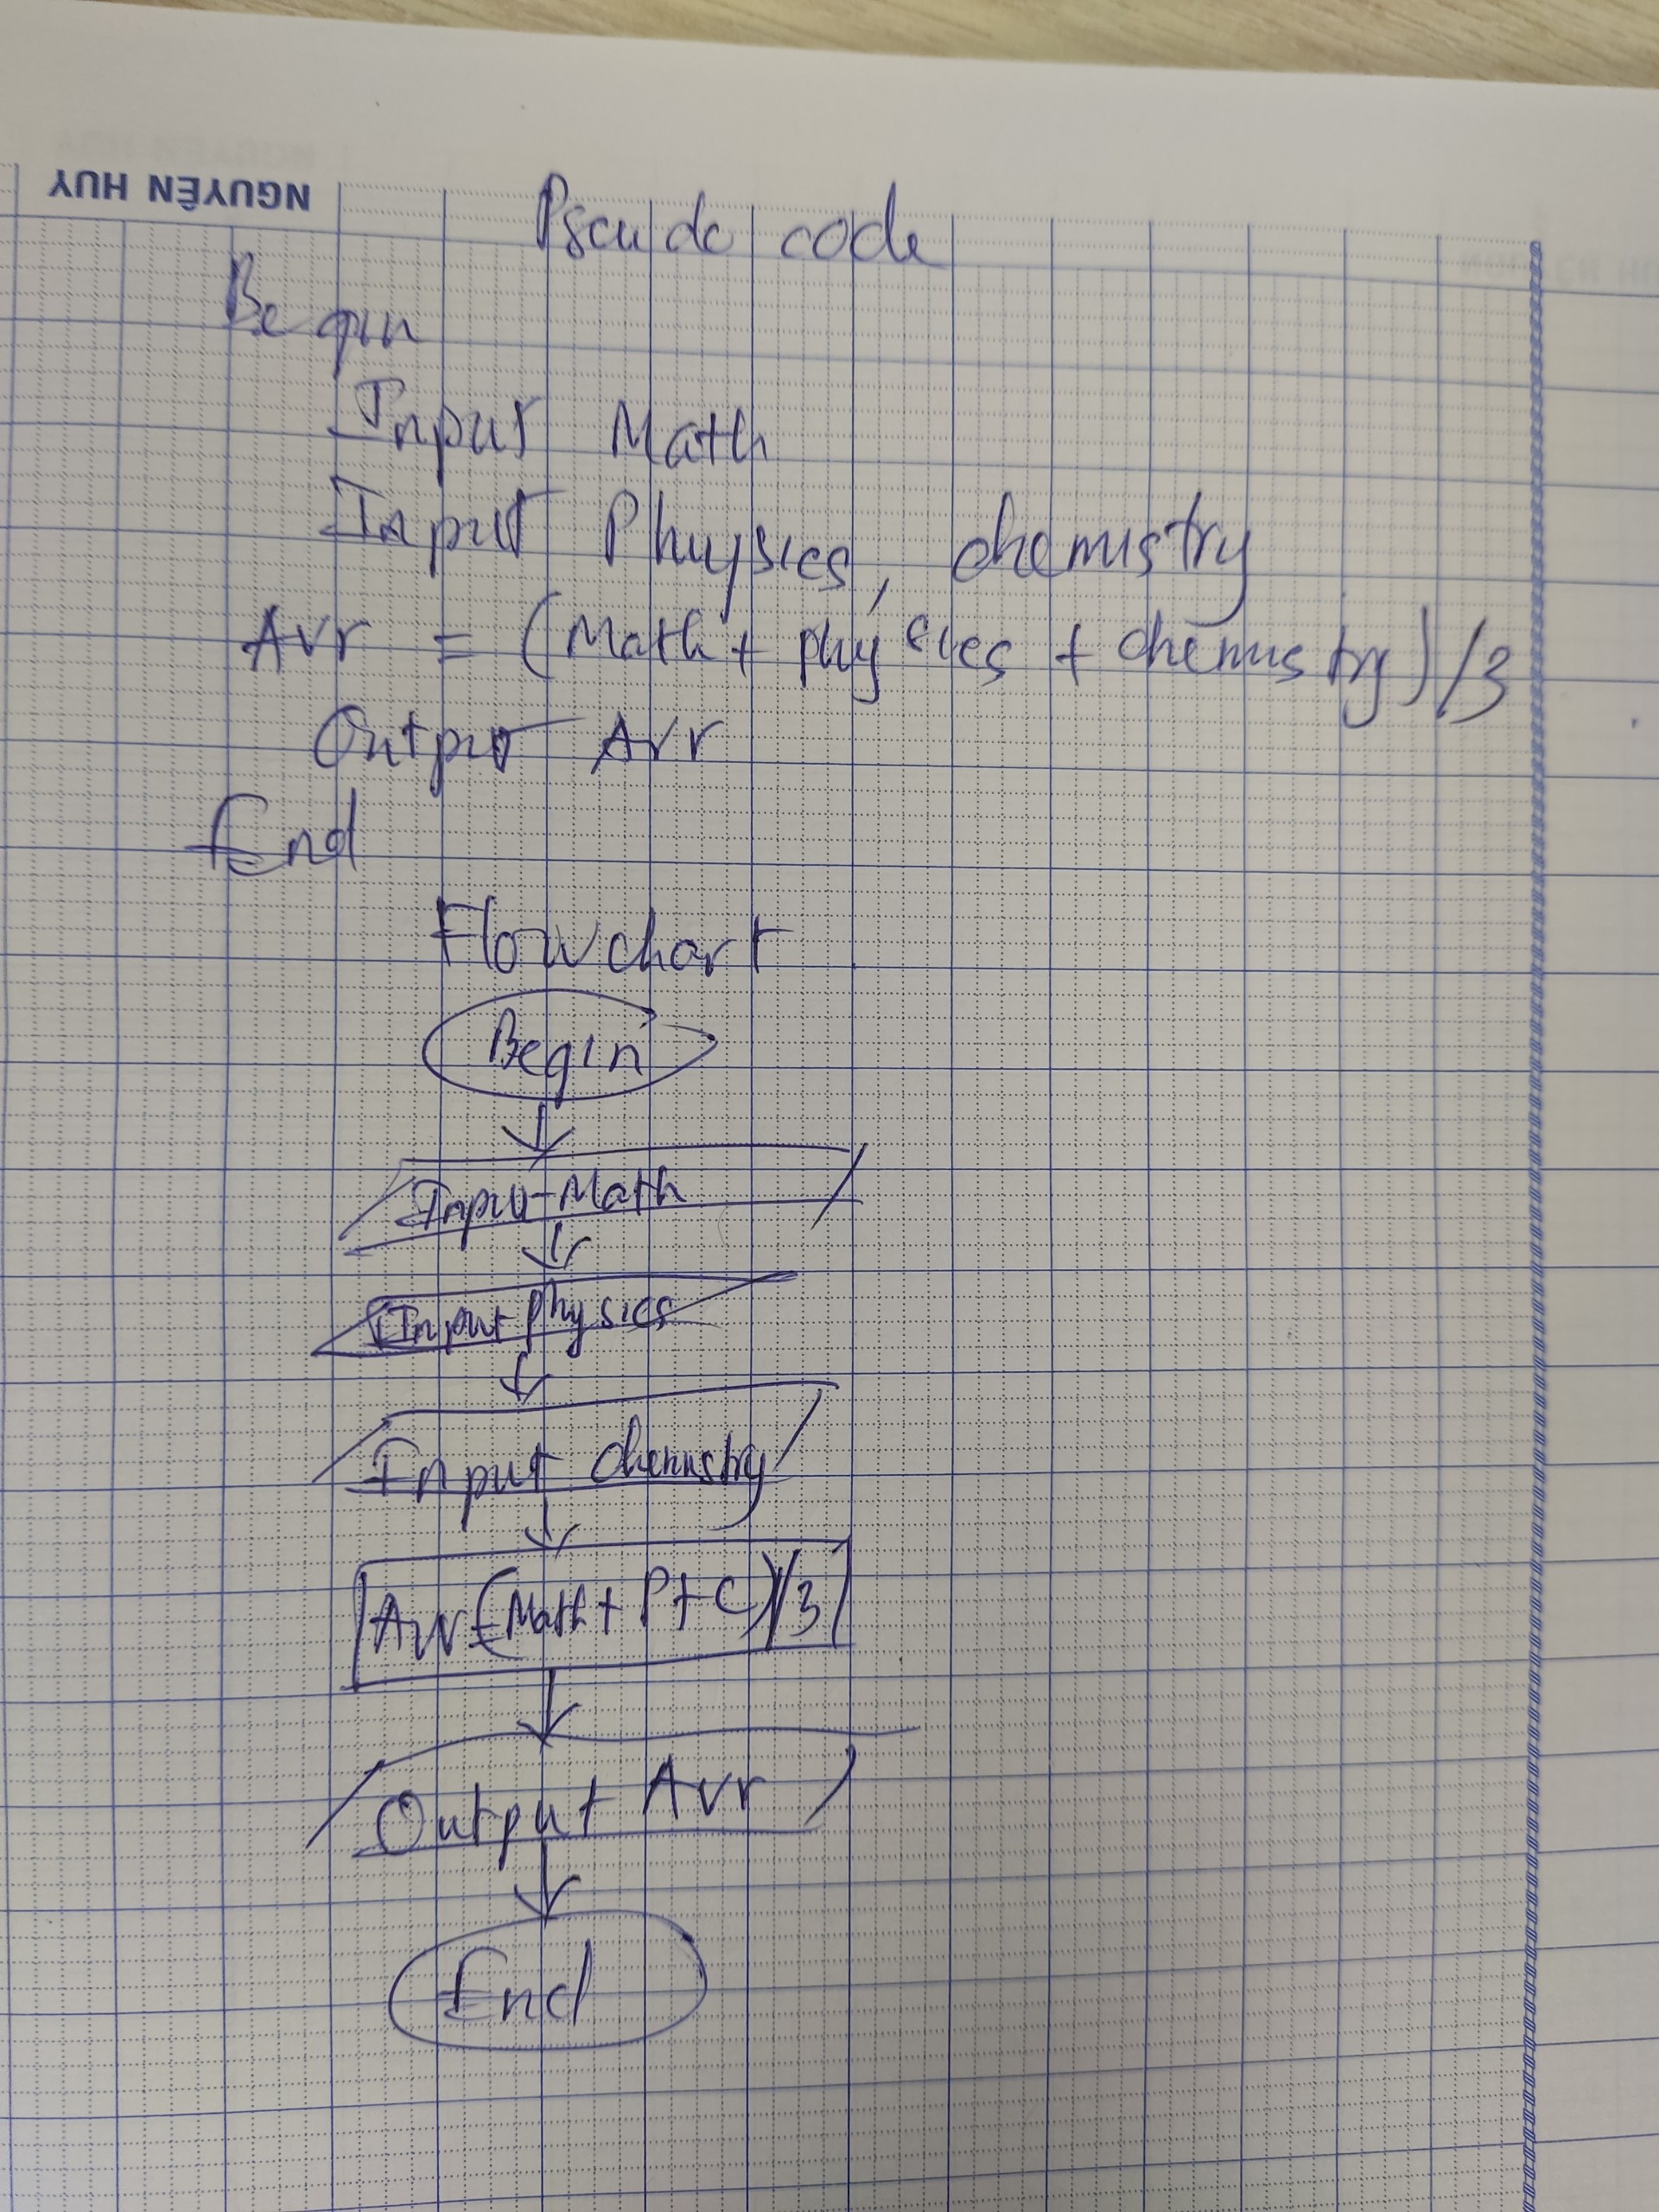 NGUYÊN HUY
Pseudo code
Begin
Input Math
Input Physics, chemistry
Avr = (Math + physics + chemistry)/3
Output Avr
End
Flowchart
Begin
Input Math
Input physics
Input chemistry
Avr=(Math + P + C)/3
Output Avr
End